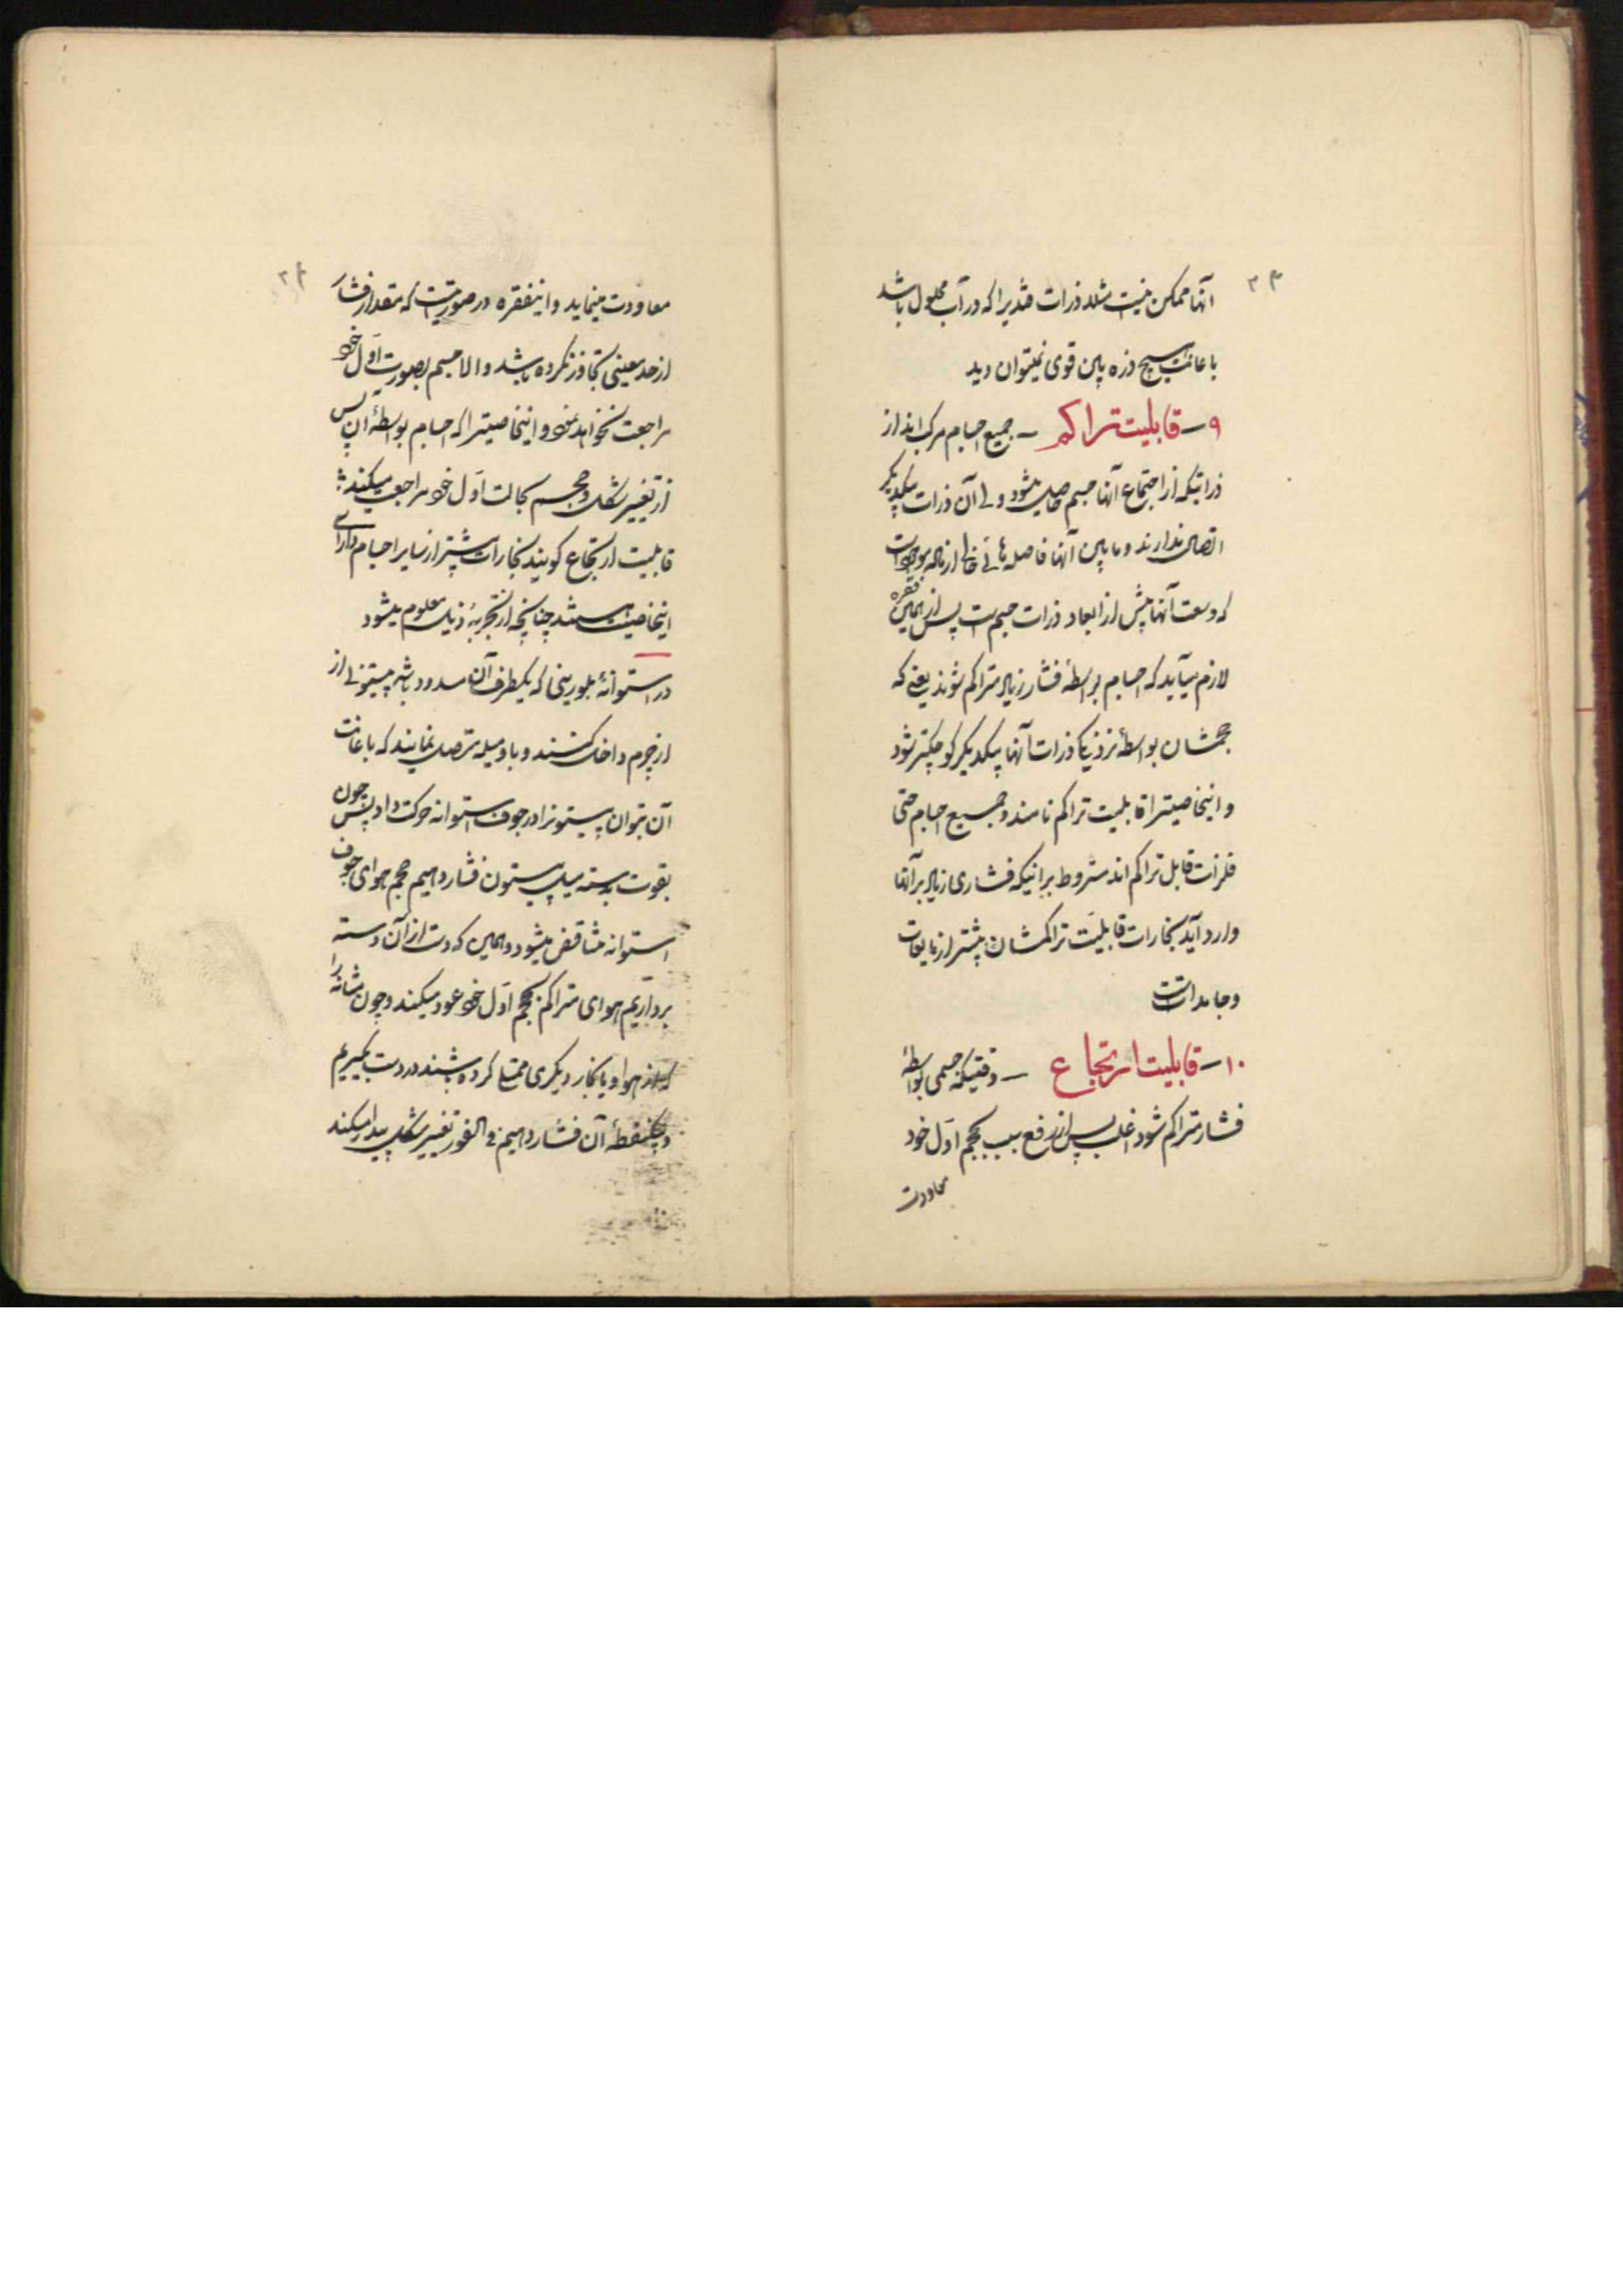 آنها ممکن نیست مثلا ذرات قندیرا که در آب محلول باشد
باعانت هیچ ذره‌بین قوی نمیتوان دید
۹ – قابلیت تراکم – جمیع اجسام مرکب‌اند از
ذراتیکه از اجتماع آنها جسم حاصل میشود ولی آن ذرات بیکدیگر
اتصال ندارند و مابین آنها فاصله‌هائی خالی از ماده موجود است
که وسعت آنها بیش از ابعاد ذرات جسم است پس از همین فقره
لازم میآید که اجسام بواسطهٔ فشار زیاد متراکم شوند یعنی که
حجمشان بواسطهٔ نزدیکی ذرات آنها بیکدیگر کوچکتر شود
و اینخاصیترا قابلیت تراکم نامند و جمیع اجسام حتی
فلزات قابل تراکم‌اند مشروط بر اینکه فشاری زیاد بر آنها
وارد آید بخارات قابلیت تراکمشان بیشتر از مایعات
و جامدات است
۱۰ – قابلیت ارتجاع – وقتیکه جسمی بواسطهٔ
فشار متراکم شود اغلب پس از رفع سبب بحجم اول خود
معاودت
۲۴
معاودت مینماید و اینفقره در صورتیست که مقدار فشار
از حد معینی تجاوز نکرده باشد و الا جسم بصورت اول خود
مراجعت نخواهد نمود و اینخاصیترا که اجسام بواسطهٔ آن پس
از تغییر شکل و حجم بحالت اول خود مراجعت میکنند
قابلیت ارتجاع گویند بخارات بیشتر از سایر اجسام دارای
اینخاصیت هستند چنانچه از تجربهٔ ذیل معلوم میشود
در استوانهٔ بلورینی که یکطرف آن مسدود باشد پیستونی از
از چرم داخل کنند و با دو میله متصل نمایند که باعانت
آن بتوان پیستونرا در جوف استوانه حرکت داد پس چون
بقوت دسته میل پیستون فشار دهیم حجم هوای جوف
استوانه متناقض میشود و همین که دست از آن دسته
برداریم هوای متراکم بحجم اول خود عود میکند و چون مثانه را
که از هوا و یا بخار دیگری ممتلی کرده باشند در دست بگیریم
و بیکنقطهٔ آن فشار دهیم فی الفور تغییر شکل پیدا میکند